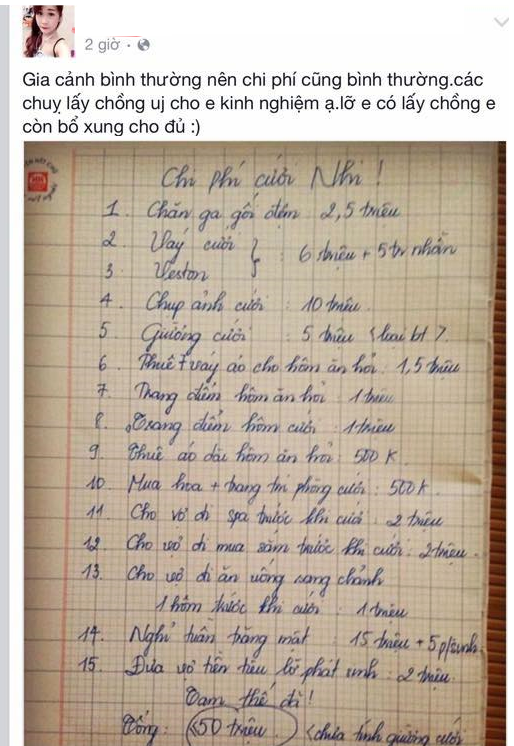 2 giờ ·
Gia cảnh bình thường nên chi phí cũng bình thường.các
chuỵ lấy chồng uị cho e kinh nghiệm ạ.lỡ e có lấy chồng e
còn bổ xung cho đủ :)
Chi phí cưới Nhi !
1. Chăn ga gối đệm 2,5 triệu
2. Váy cưới } : 6 triệu + 5tr nhẫn
3. Veston
4. Chụp ảnh cưới : 10 triệu
5. Giường cưới : 5 triệu < loại bt >.
6. Thuê váy áo cho hôm ăn hỏi : 1,5 triệu
7. Trang điểm hôm ăn hỏi : 1 triệu
8. Trang điểm hôm cưới : 1 triệu
9. Thuê áo dài hôm ăn hỏi : 500 K
10. Mua hoa + trang trí phòng cưới : 500 K.
11. Cho vợ đi spa trước khi cưới : 2 triệu
12. Cho vợ đi mua sắm trước khi cưới : 2 triệu.
13. Cho vợ đi ăn uống sang chảnh
1 hôm trước khi cưới : 1 triệu
14. Nghỉ tuần trăng mật : 15 triệu + 5 p/sinh
15. Đưa vợ tiền tiêu lỡ phát sinh : 2 triệu
Tạm thế đã !
Tổng : <50 triệu > <chưa tính giường cưới